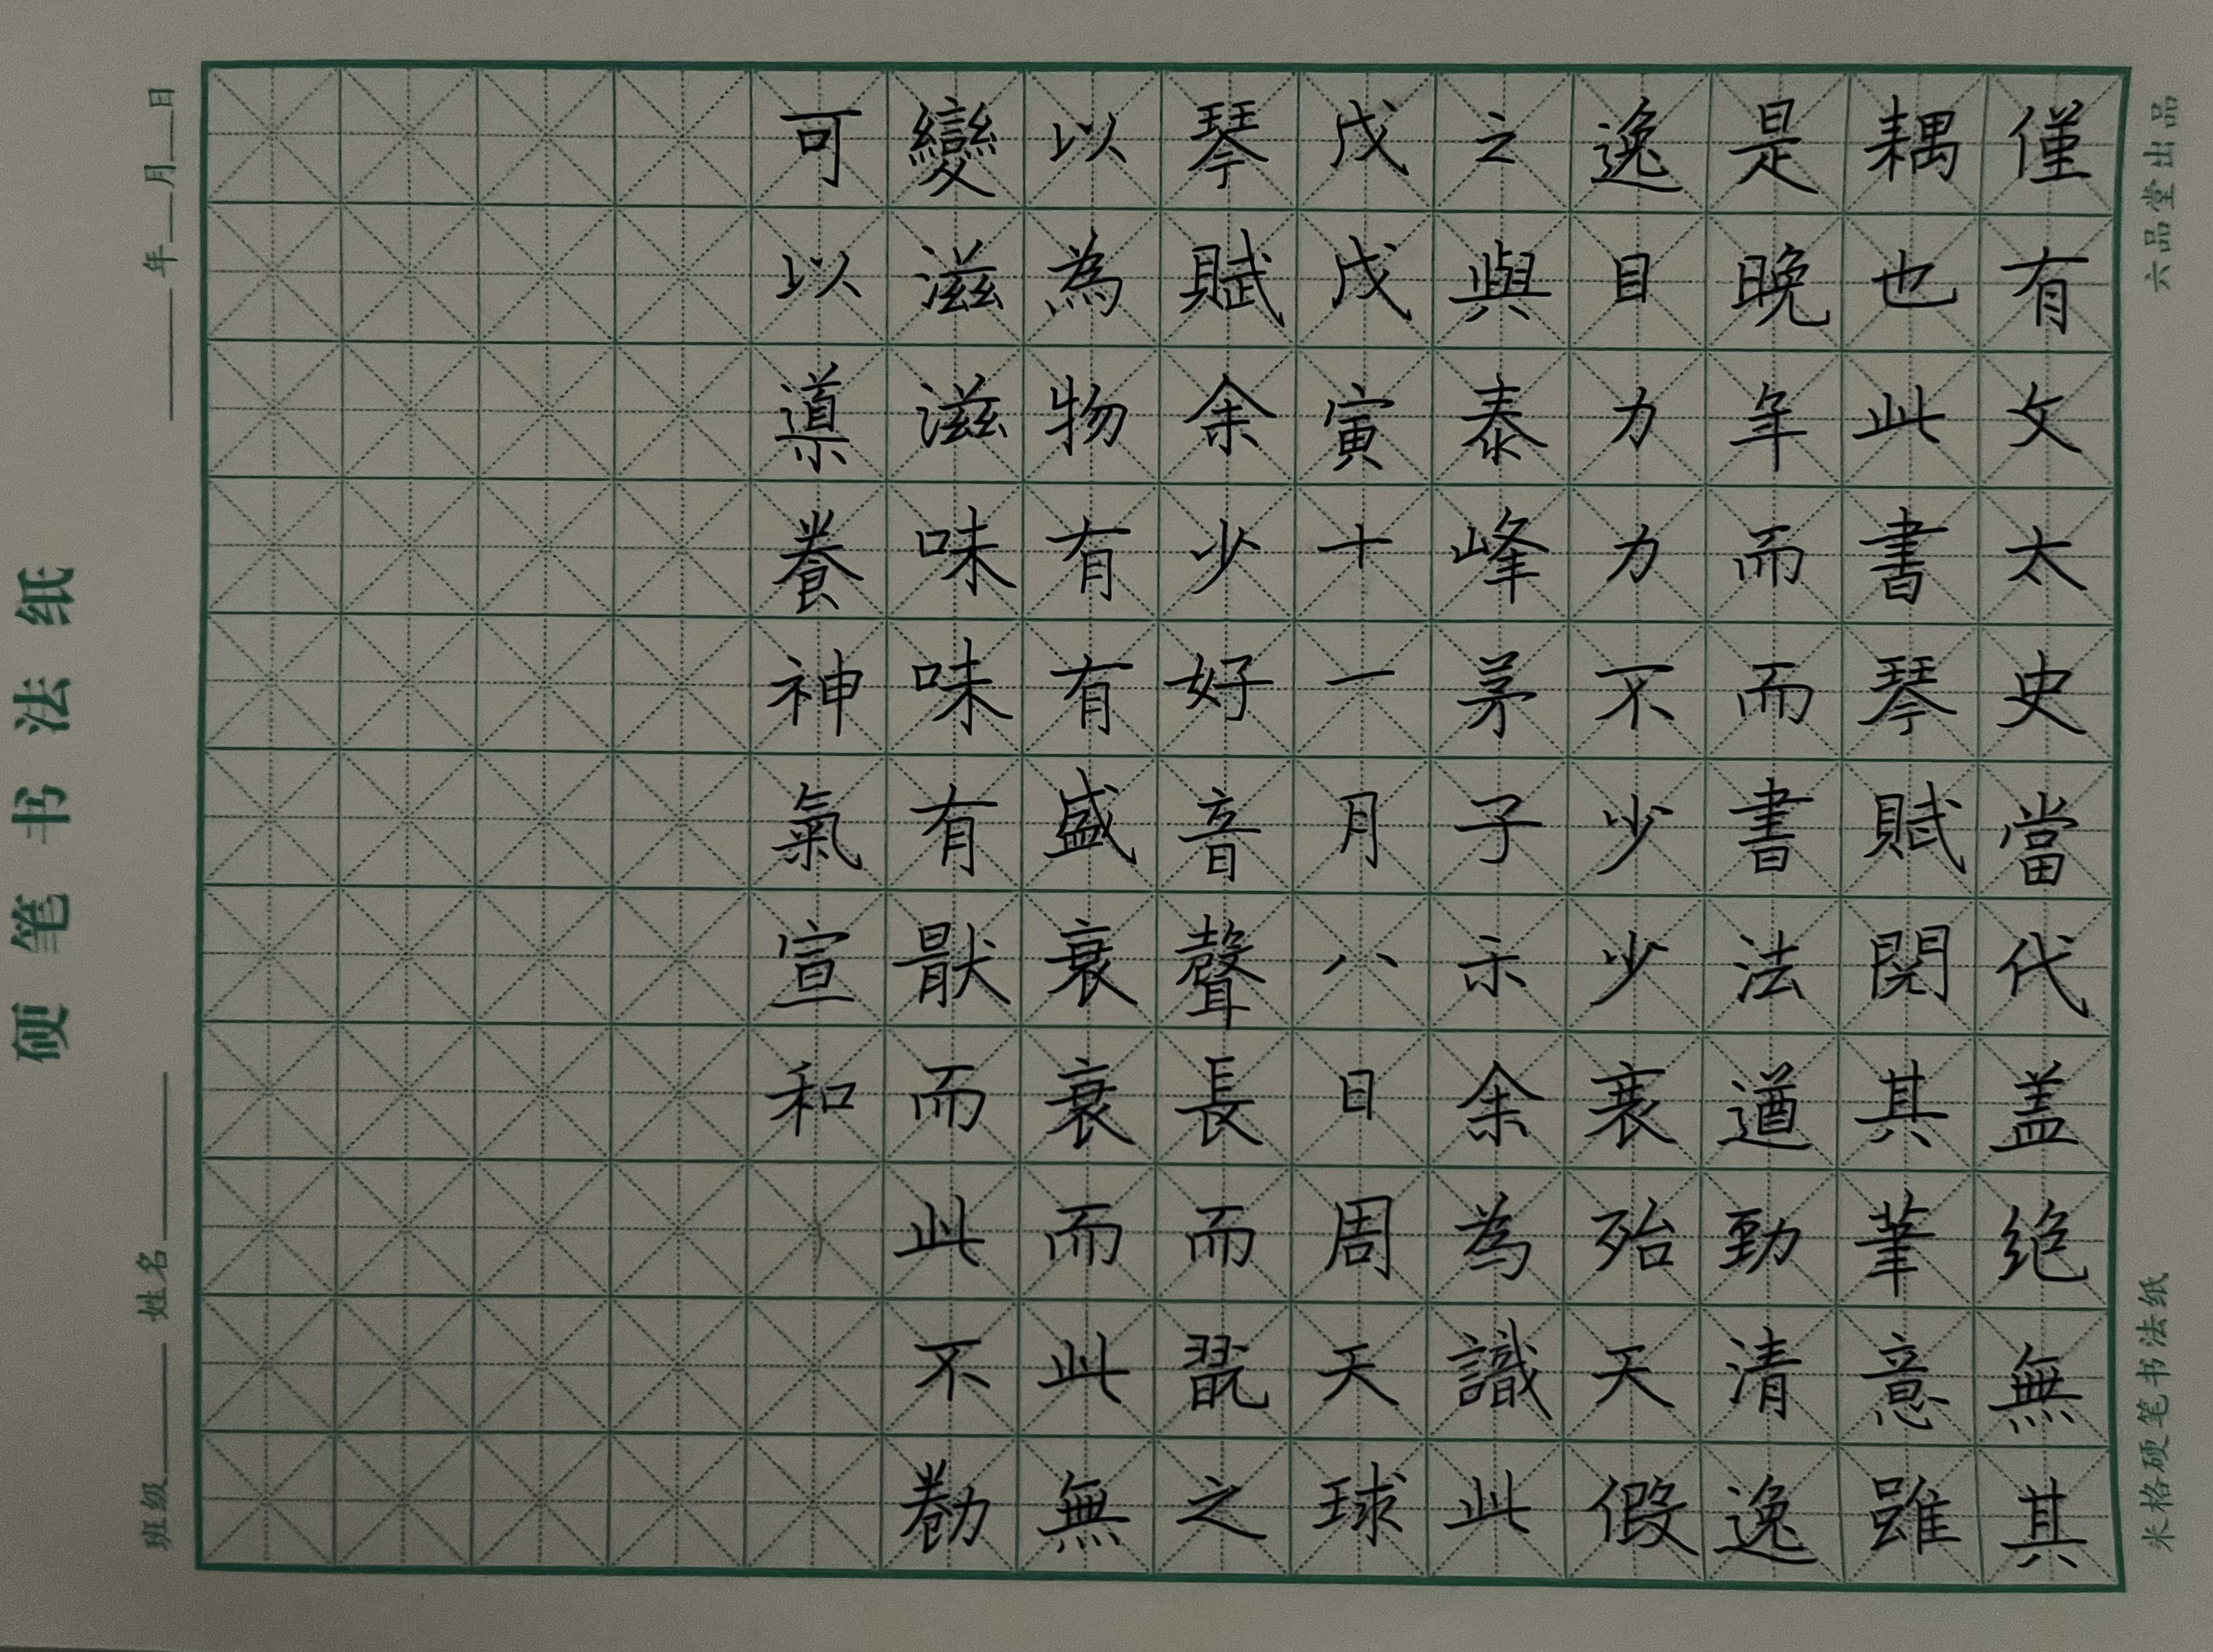 六品堂出品
米格硬笔书法纸
僅有文太史當代盖绝無其
耦也此書琴賦閱其筆意雖
是晚年而而書法遒勁清逸
逸目力力不少少衰殆天假
之與泰峰茅子示余為識此
戊戊寅十一月八日周天球
琴賦余少好音聲長而翫之
以為物有有盛衰衰而此無
變滋滋味味有猒而此不勌
可以導養神氣宣和
班级 姓名 年 月 日
硬笔书法纸